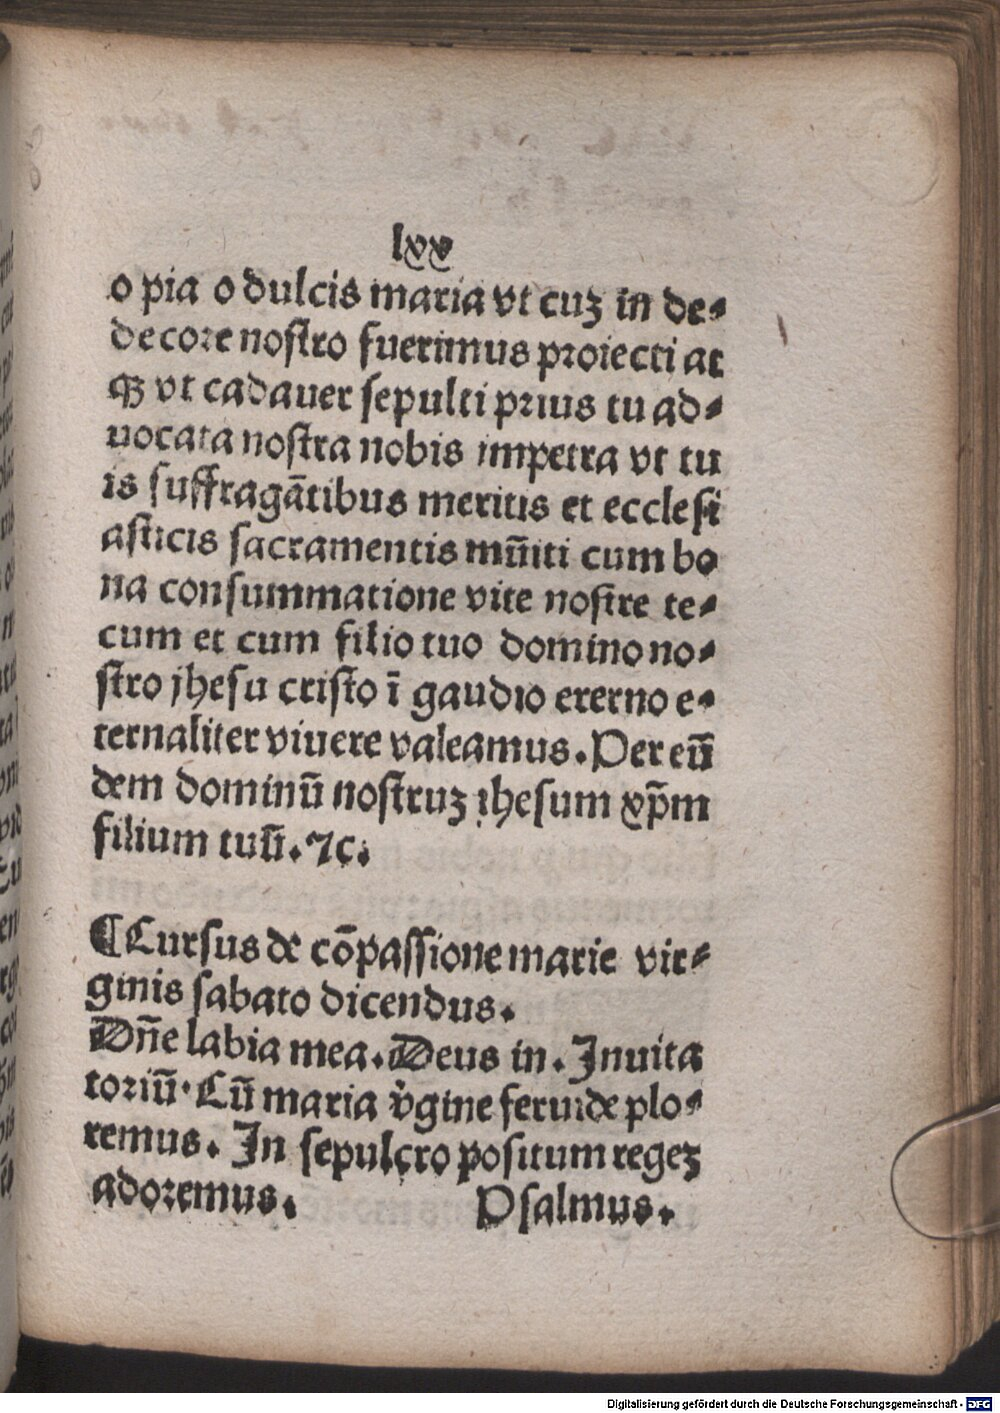 lxx
o pia o dulcis maria vt cuꝫ in de⸗
decore nostro fuerimus proiecti at
qꝫ vt cadauer sepulti prius tu ad⸗
uocata nostra nobis impetra vt tu
is suffragātibus meritis et ecclesi
asticis sacramentis mūiti cum bo
na consummatione vite nostre te⸗
cum et cum filio tuo domino no⸗
stro jhesu cristo ī gaudio eterno e⸗
ternaliter viuere valeamus. Per eū
dem dominū nostruꝫ ihesum xp̄m
filium tuū. ⁊c.
¶ Cursus de cōpassione marie vir⸗
ginis sabato dicendus.
Dn̄e labia mea. Deus in. Inuita
toriū. Cū maria v̾gine feruide plo⸗
remus. In sepulcro positum regeꝫ
adoremus. Psalmus.
Digitalisierung gefördert durch die Deutsche Forschungsgemeinschaft - DFG